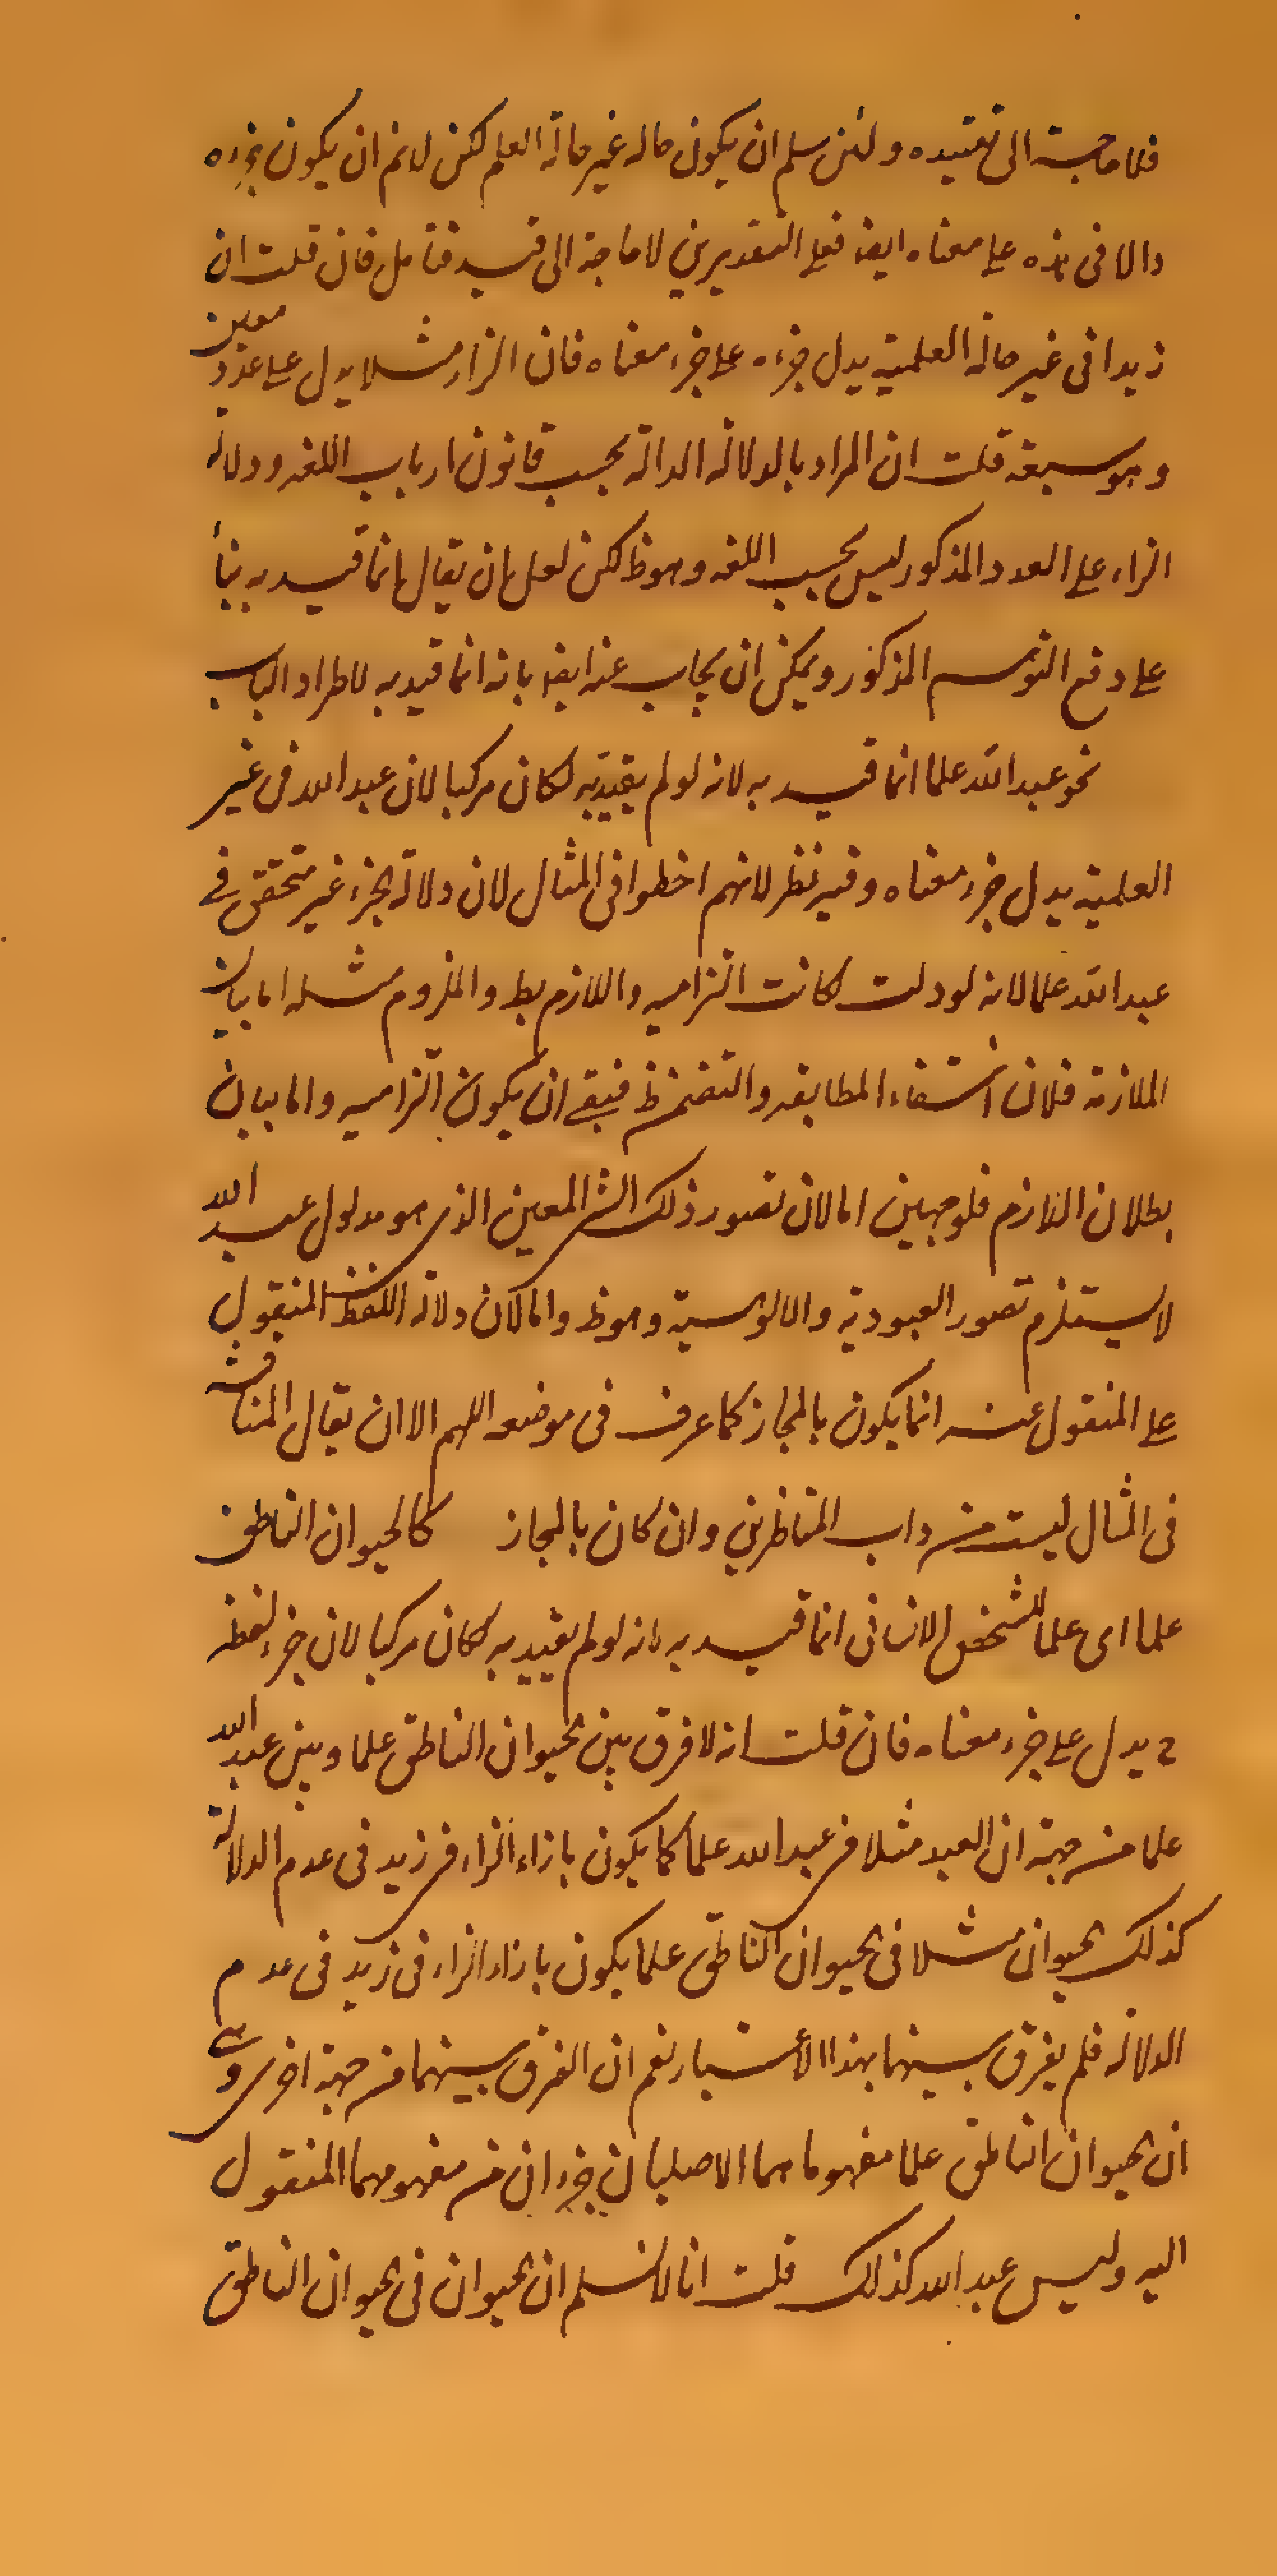 فلا حاجة الى تقييده ولئن سلم ان يكون حاله غير حالة العلم لكن لانم ان يكون جزءه
دالا فى هذه على معناه ايضا فعلى التقديرين لا حاجة الى قيد فتأمل فان قلت ان
زيدا فى غير حالة العلمية يدل جزءه على جزء معناه فان الزاء مثلا يدل على عدد معين
وهو سبعة قلت ان المراد بالدلالة الدالة بحسب قانون ارباب اللغه ودلالة
الزاء على العدد المذكور ليس بحسب اللغه وهو ظ لكن لعل ان يقال انما قيد به بناء
على دفع التوهم المذكور ويمكن ان يجاب عنه ايضا بانه انما قيد به لاطراد الباب
نحو عبد الله علما انما قيد به لانه لو لم يقيد به لكان مركبا لان عبد الله فى غير
العلمية يدل جزء معناه وفيه نظر لانهم اخطوا فى المثال لان دلالة الجزء غير متحقق فى
عبد الله علما لانه لو دلت لكانت التزاميه واللازم بط والملزوم مثله اما بيان
الملازمة فلان انتفاء المطابقه والتضمن ظ فبقى ان يكون التزاميه واما بيان
بطلان اللازم فلوجهين اما لان تصور ذلك الشئ المعين الذى هو مدلول عبد الله
لا يستلزم تصور العبودية والالوهية وهو ظ واما لان دلالة اللفظ المنقول
على المنقول عنه انما يكون بالمجاز كما عرف فى موضعه اللهم الا ان يقال المناقشة
فى المثال ليست من داب المناظرين وان كان بالمجاز كالحيوان الناطق
علما اى علما للشخص الانسانى انما قيد به لانه لو لم يقيد به لكان مركبا لان جزء لفظه
ح يدل على جزء معناه فان قلت انه لا فرق بين الحيوان الناطق علما وبين عبد الله
علما من جهة ان العبد مثلا فى عبد الله علما كما يكون بازاء الزاء فى زيد فى عدم الدلالة
كذلك الحيوان مثلا فى الحيوان الناطق علما يكون بازاء الزاء فى زيد فى عدم
الدلالة فلم يفرق بينهما بهذا الاعتبار نعم ان الفرق بينهما من جهة اخرى وهى
ان الحيوان الناطق علما مفهوماهما الاصليان جزءان من مفهومهما المنقول
اليه وليس عبد الله كذلك قلت انا لا نسلم ان الحيوان فى الحيوان الناطق